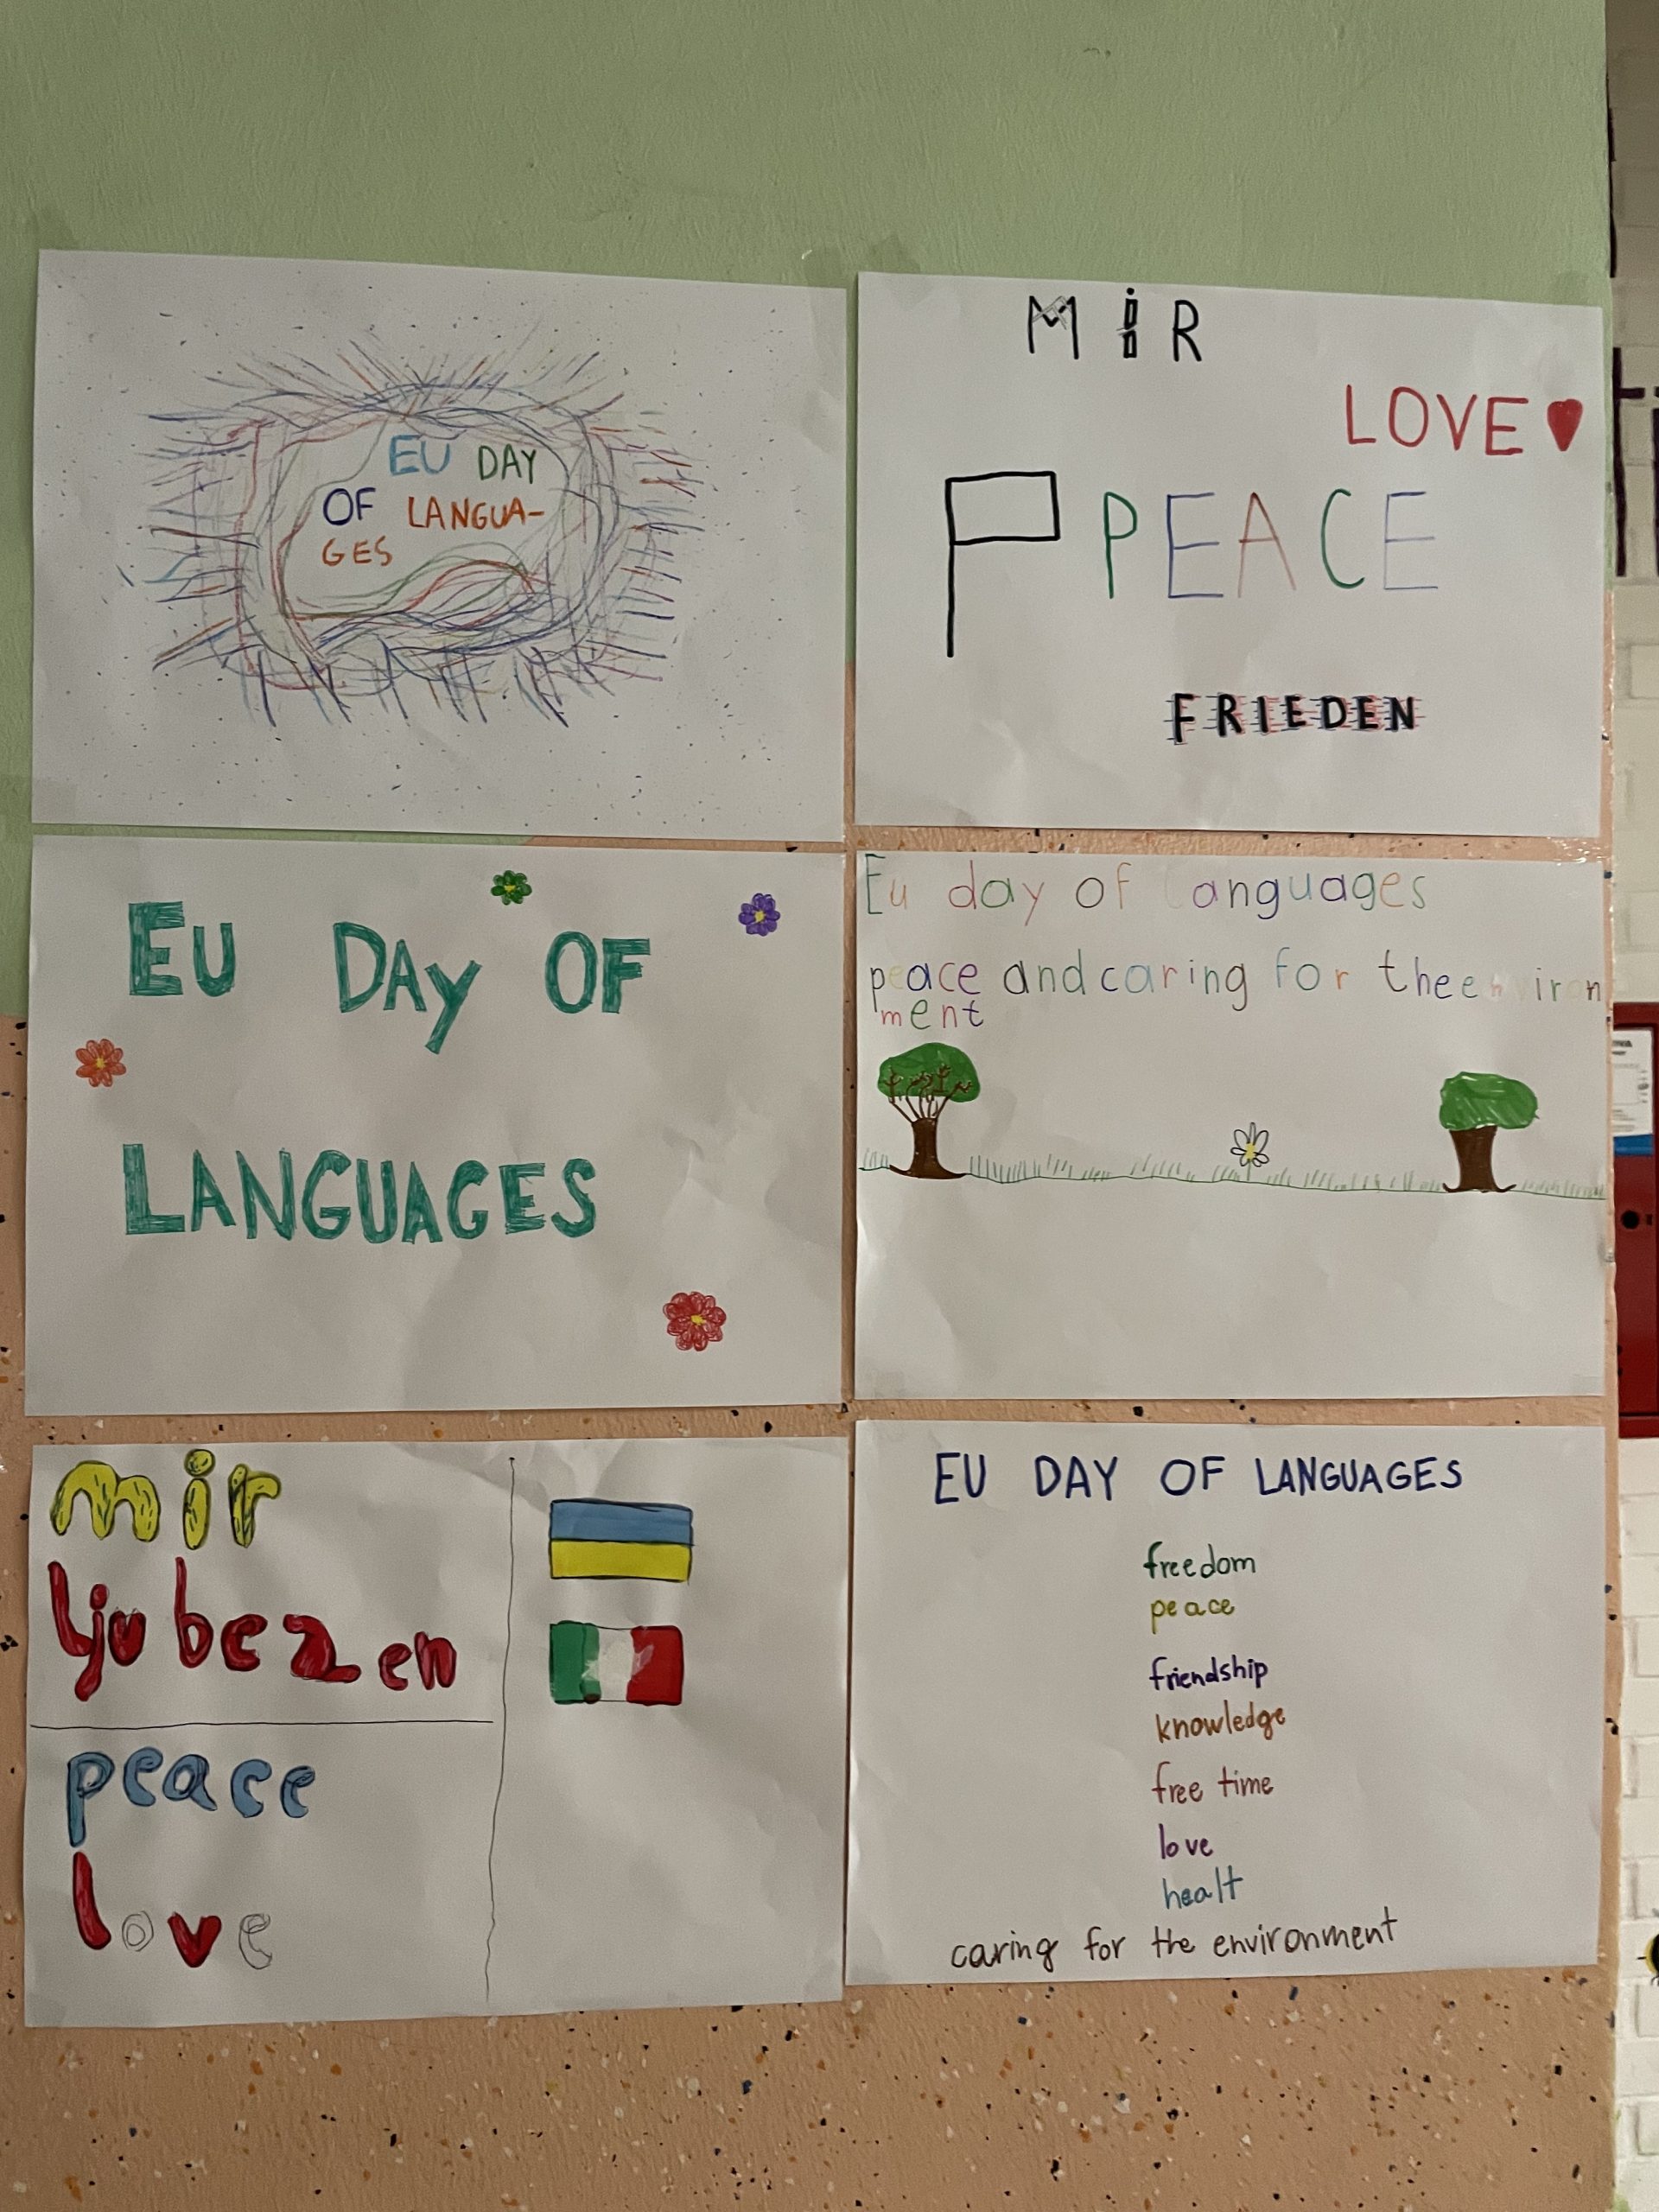 EU DAY
OF LANGUA-
GES
MiR
LOVE
PEACE
FRIEDEN
EU DAy OF
LANGUAGES
Eu day of languages
peace and caring for the environ
ment
mir
ljubezen
peace
love
EU DAY OF LANGUAGES
freedom
peace
friendship
knowledge
free time
love
healt
caring for the environment